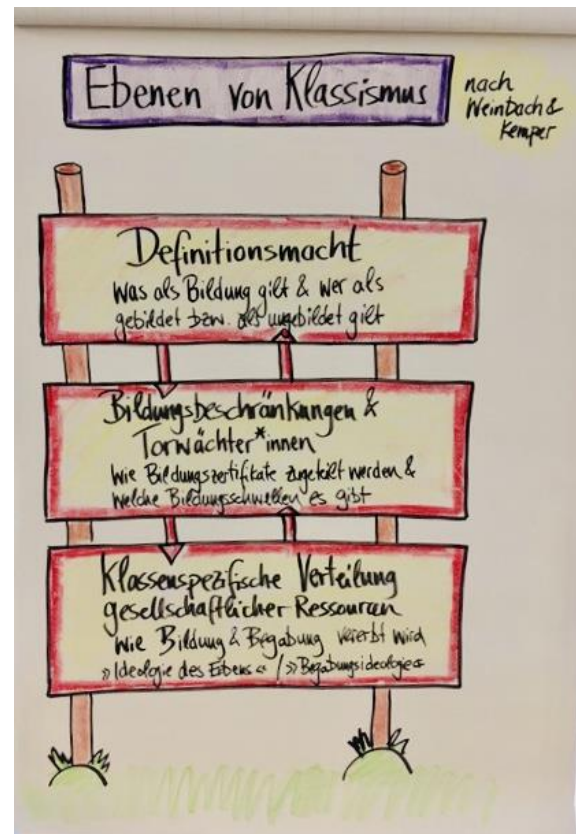 Ebenen von Klassismus
nach
Weinbach &
Kemper
Definitionsmacht
Was als Bildung gilt & wer als
gebildet bzw. als ungebildet gilt
Bildungsbeschränkungen &
Torwächter*innen
Wie Bildungszertifikate zugeteilt werden &
welche Bildungsschwellen es gibt
Klassenspezifische Verteilung
gesellschaftlicher Ressourcen
Wie Bildung & Begabung vererbt wird
»Ideologie des Erbens« / »Begabungsideologie«